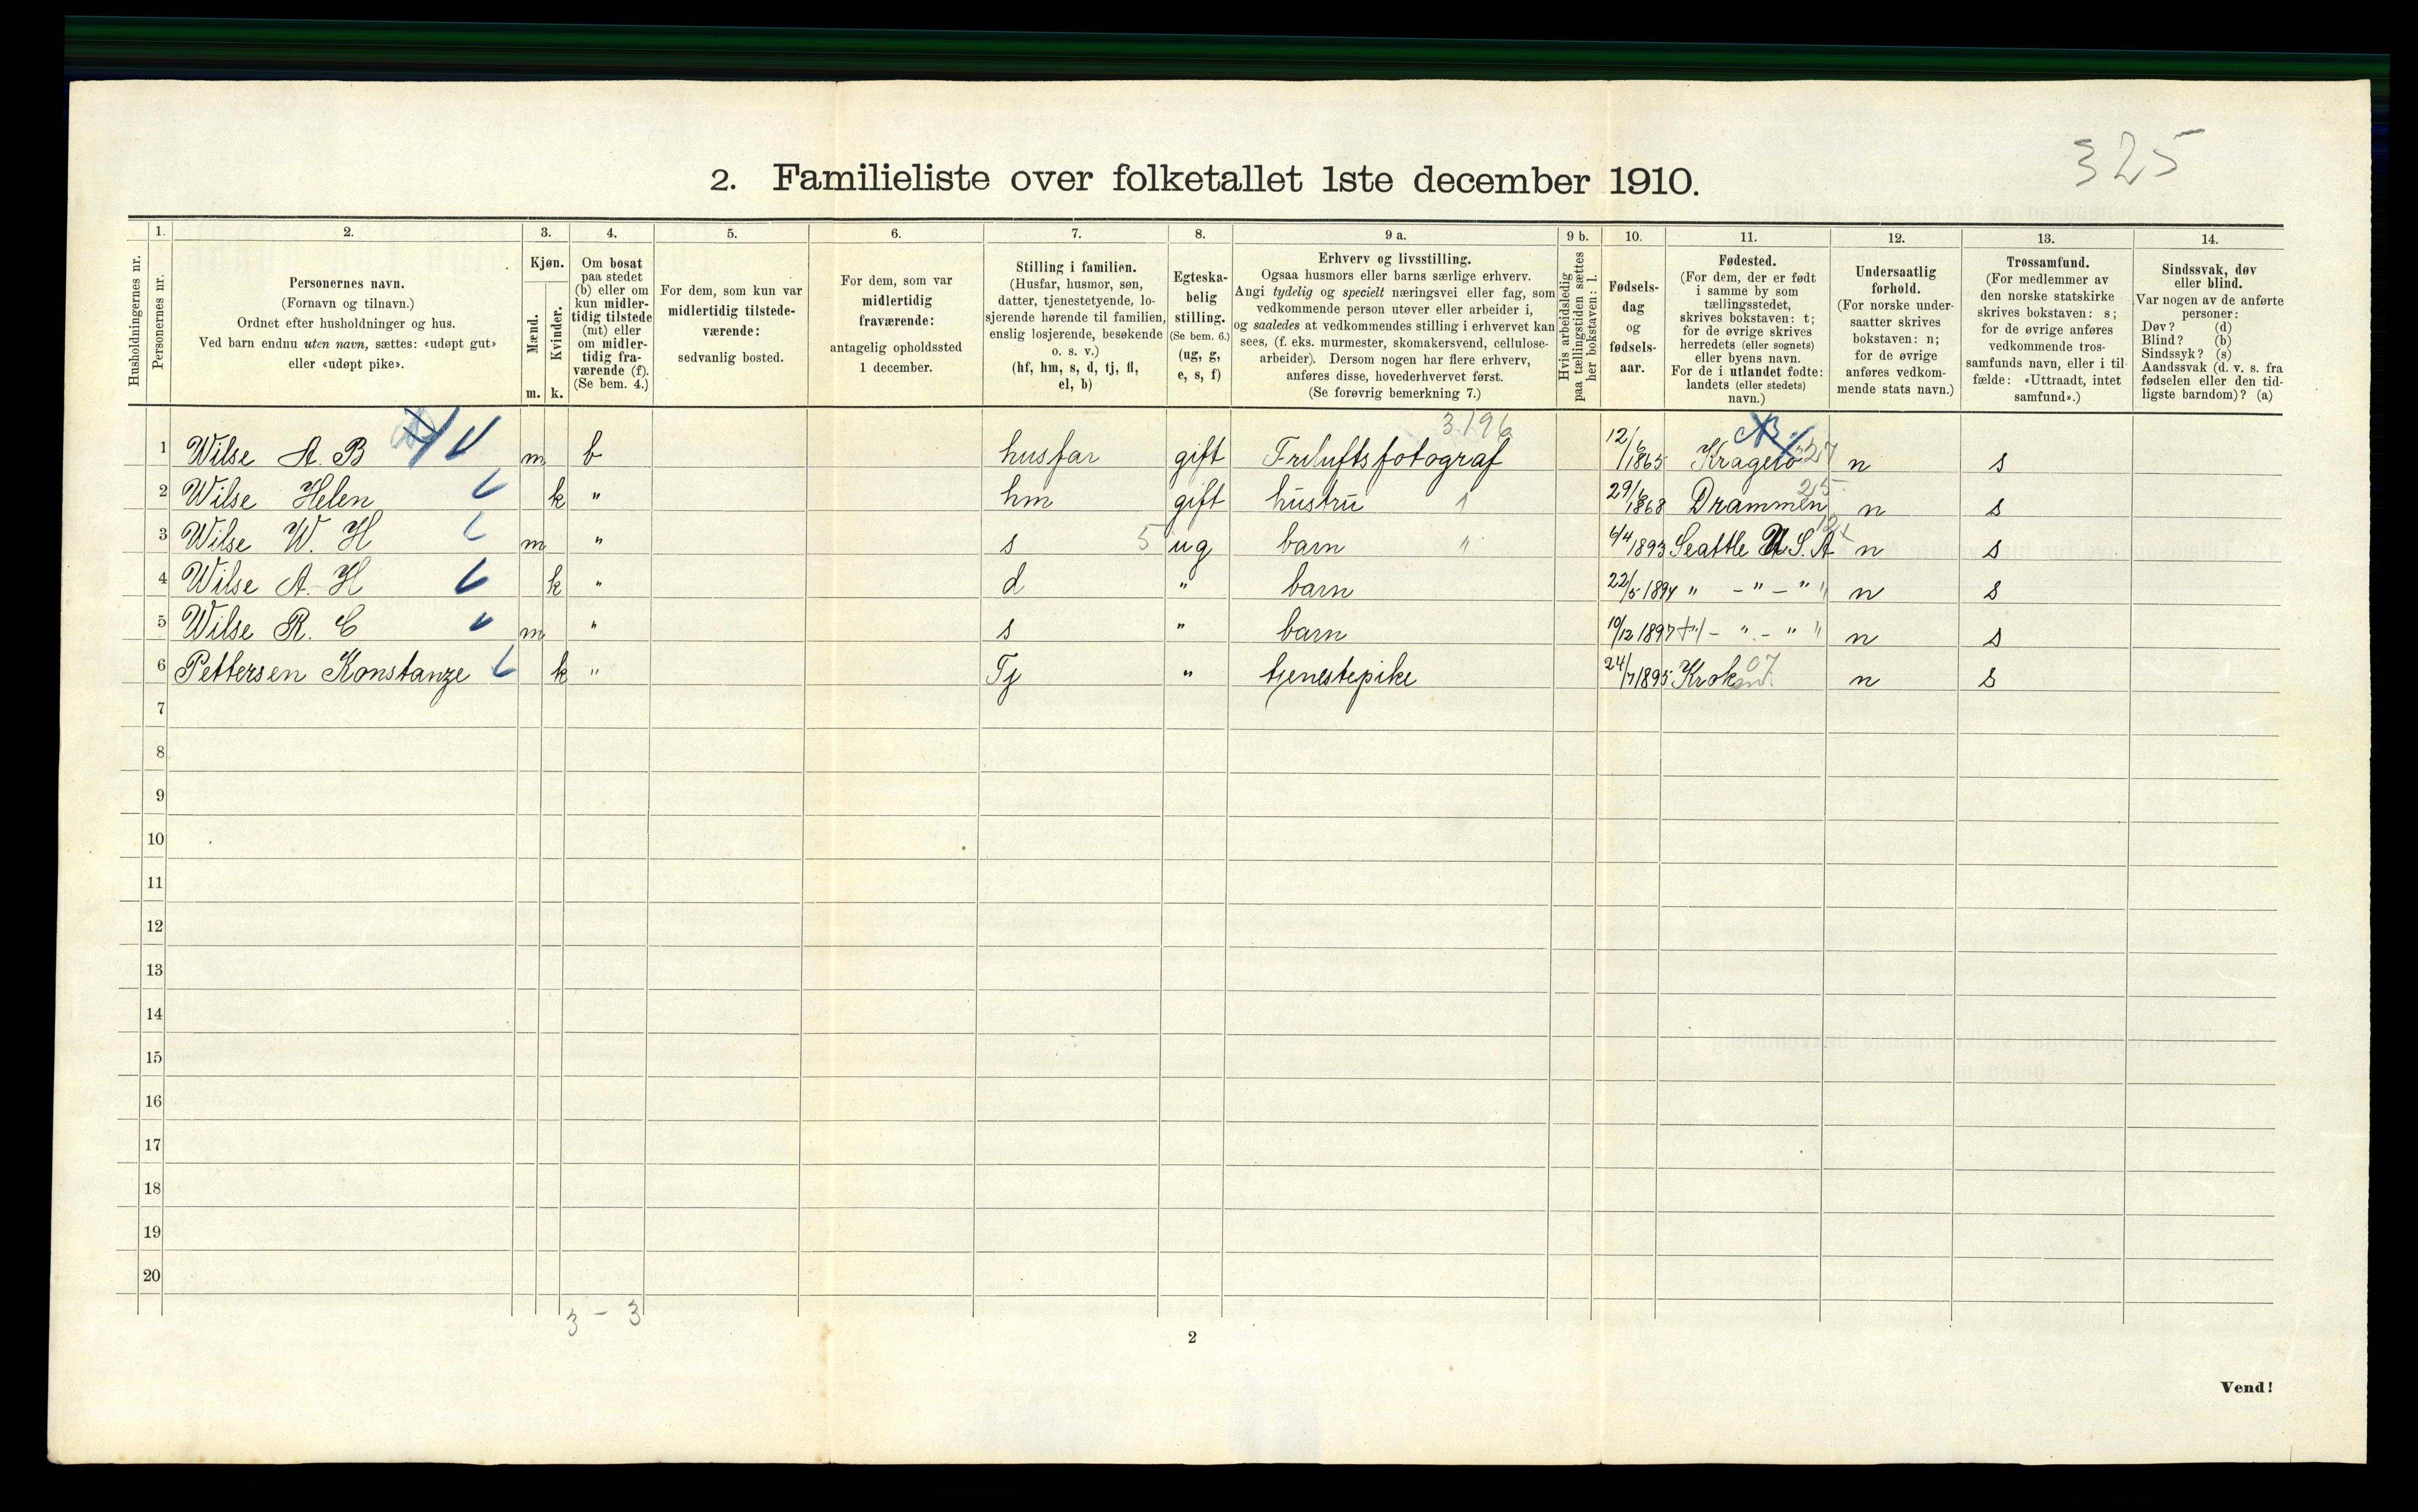 325
2. Familieliste over folketallet 1ste december 1910.
1. 2. 3. 4. 5. 6. 7. 8. 9 a. 9 b. 10. 11. 12. 13. 14.
Husholdningernes nr.
Personernes nr.
Personernes navn.
(Fornavn og tilnavn.)
Ordnet efter husholdninger og hus.
Ved barn endnu uten navn, sættes: «udøpt gut»
eller «udøpt pike».
Kjøn.
Mænd.
Kvinder.
m. k.
Om bosat
paa stedet
(b) eller om
kun midler-
tidig tilstede
(mt) eller
om midler-
tidig fra-
værende (f).
(Se bem. 4.)
For dem, som kun var
midlertidig tilstede-
værende:
sedvanlig bosted.
For dem, som var
midlertidig
fraværende:
antagelig opholdssted
1 december.
Stilling i familien.
(Husfar, husmor, søn,
datter, tjenestetyende, lo-
sjerende hørende til familien,
enslig losjerende, besøkende
o. s. v.)
(hf, hm, s, d, tj, fl,
el, b)
Egteska-
belig
stilling.
(Se bem. 6.)
(ug, g,
e, s, f)
Erhverv og livsstilling.
Ogsaa husmors eller barns særlige erhverv.
Angi tydelig og specielt næringsvei eller fag, som
vedkommende person utøver eller arbeider i,
og saaledes at vedkommendes stilling i erhvervet kan
sees, (f. eks. murmester, skomakersvend, cellulose-
arbeider). Dersom nogen har flere erhverv,
anføres disse, hovederhvervet først.
(Se forøvrig bemerkning 7.)
Hvis arbeidsledig
paa tællingstiden sættes
her bokstaven: l.
Fødsels-
dag
og
fødsels-
aar.
Fødested.
(For dem, der er født
i samme by som
tællingsstedet,
skrives bokstaven: t;
for de øvrige skrives
herredets (eller sognets)
eller byens navn.
For de i utlandet fødte:
landets (eller stedets)
navn.)
Undersaatlig
forhold.
(For norske under-
saatter skrives
bokstaven: n;
for de øvrige
anføres vedkom-
mende stats navn.)
Trossamfund.
(For medlemmer av
den norske statskirke
skrives bokstaven: s;
for de øvrige anføres
vedkommende tros-
samfunds navn, eller i til-
fælde: «Uttraadt, intet
samfund».)
Sindssvak, døv
eller blind.
Var nogen av de anførte
personer:
Døv? (d)
Blind? (b)
Sindssyk? (s)
Aandssvak (d. v. s. fra
fødselen eller den tid-
ligste barndom)? (a)
3196
1 Wilse A. B m b husfar gift Friluftsfotograf 12/6 1865 Kragerø 27 n s
2 Wilse Helen k " hm gift hustru 1 29/6 1868 Drammen 25 n s
3 Wilse W. H m " s 5 ug barn " 6/4 1893 Seattle U.S.A n s
4 Wilse A. H k " d " barn 22/5 1894 " - " - " " n s
5 Wilse R. C m " s " barn 10/12 1897 " - " - " " n s
6 Pettersen Konstanze k " Tj " tjenestepike 24/7 1895 Krok 07 n s
7
8
9
10
11
12
13
14
15
16
17
18
19
20
3 - 3
2
Vend!